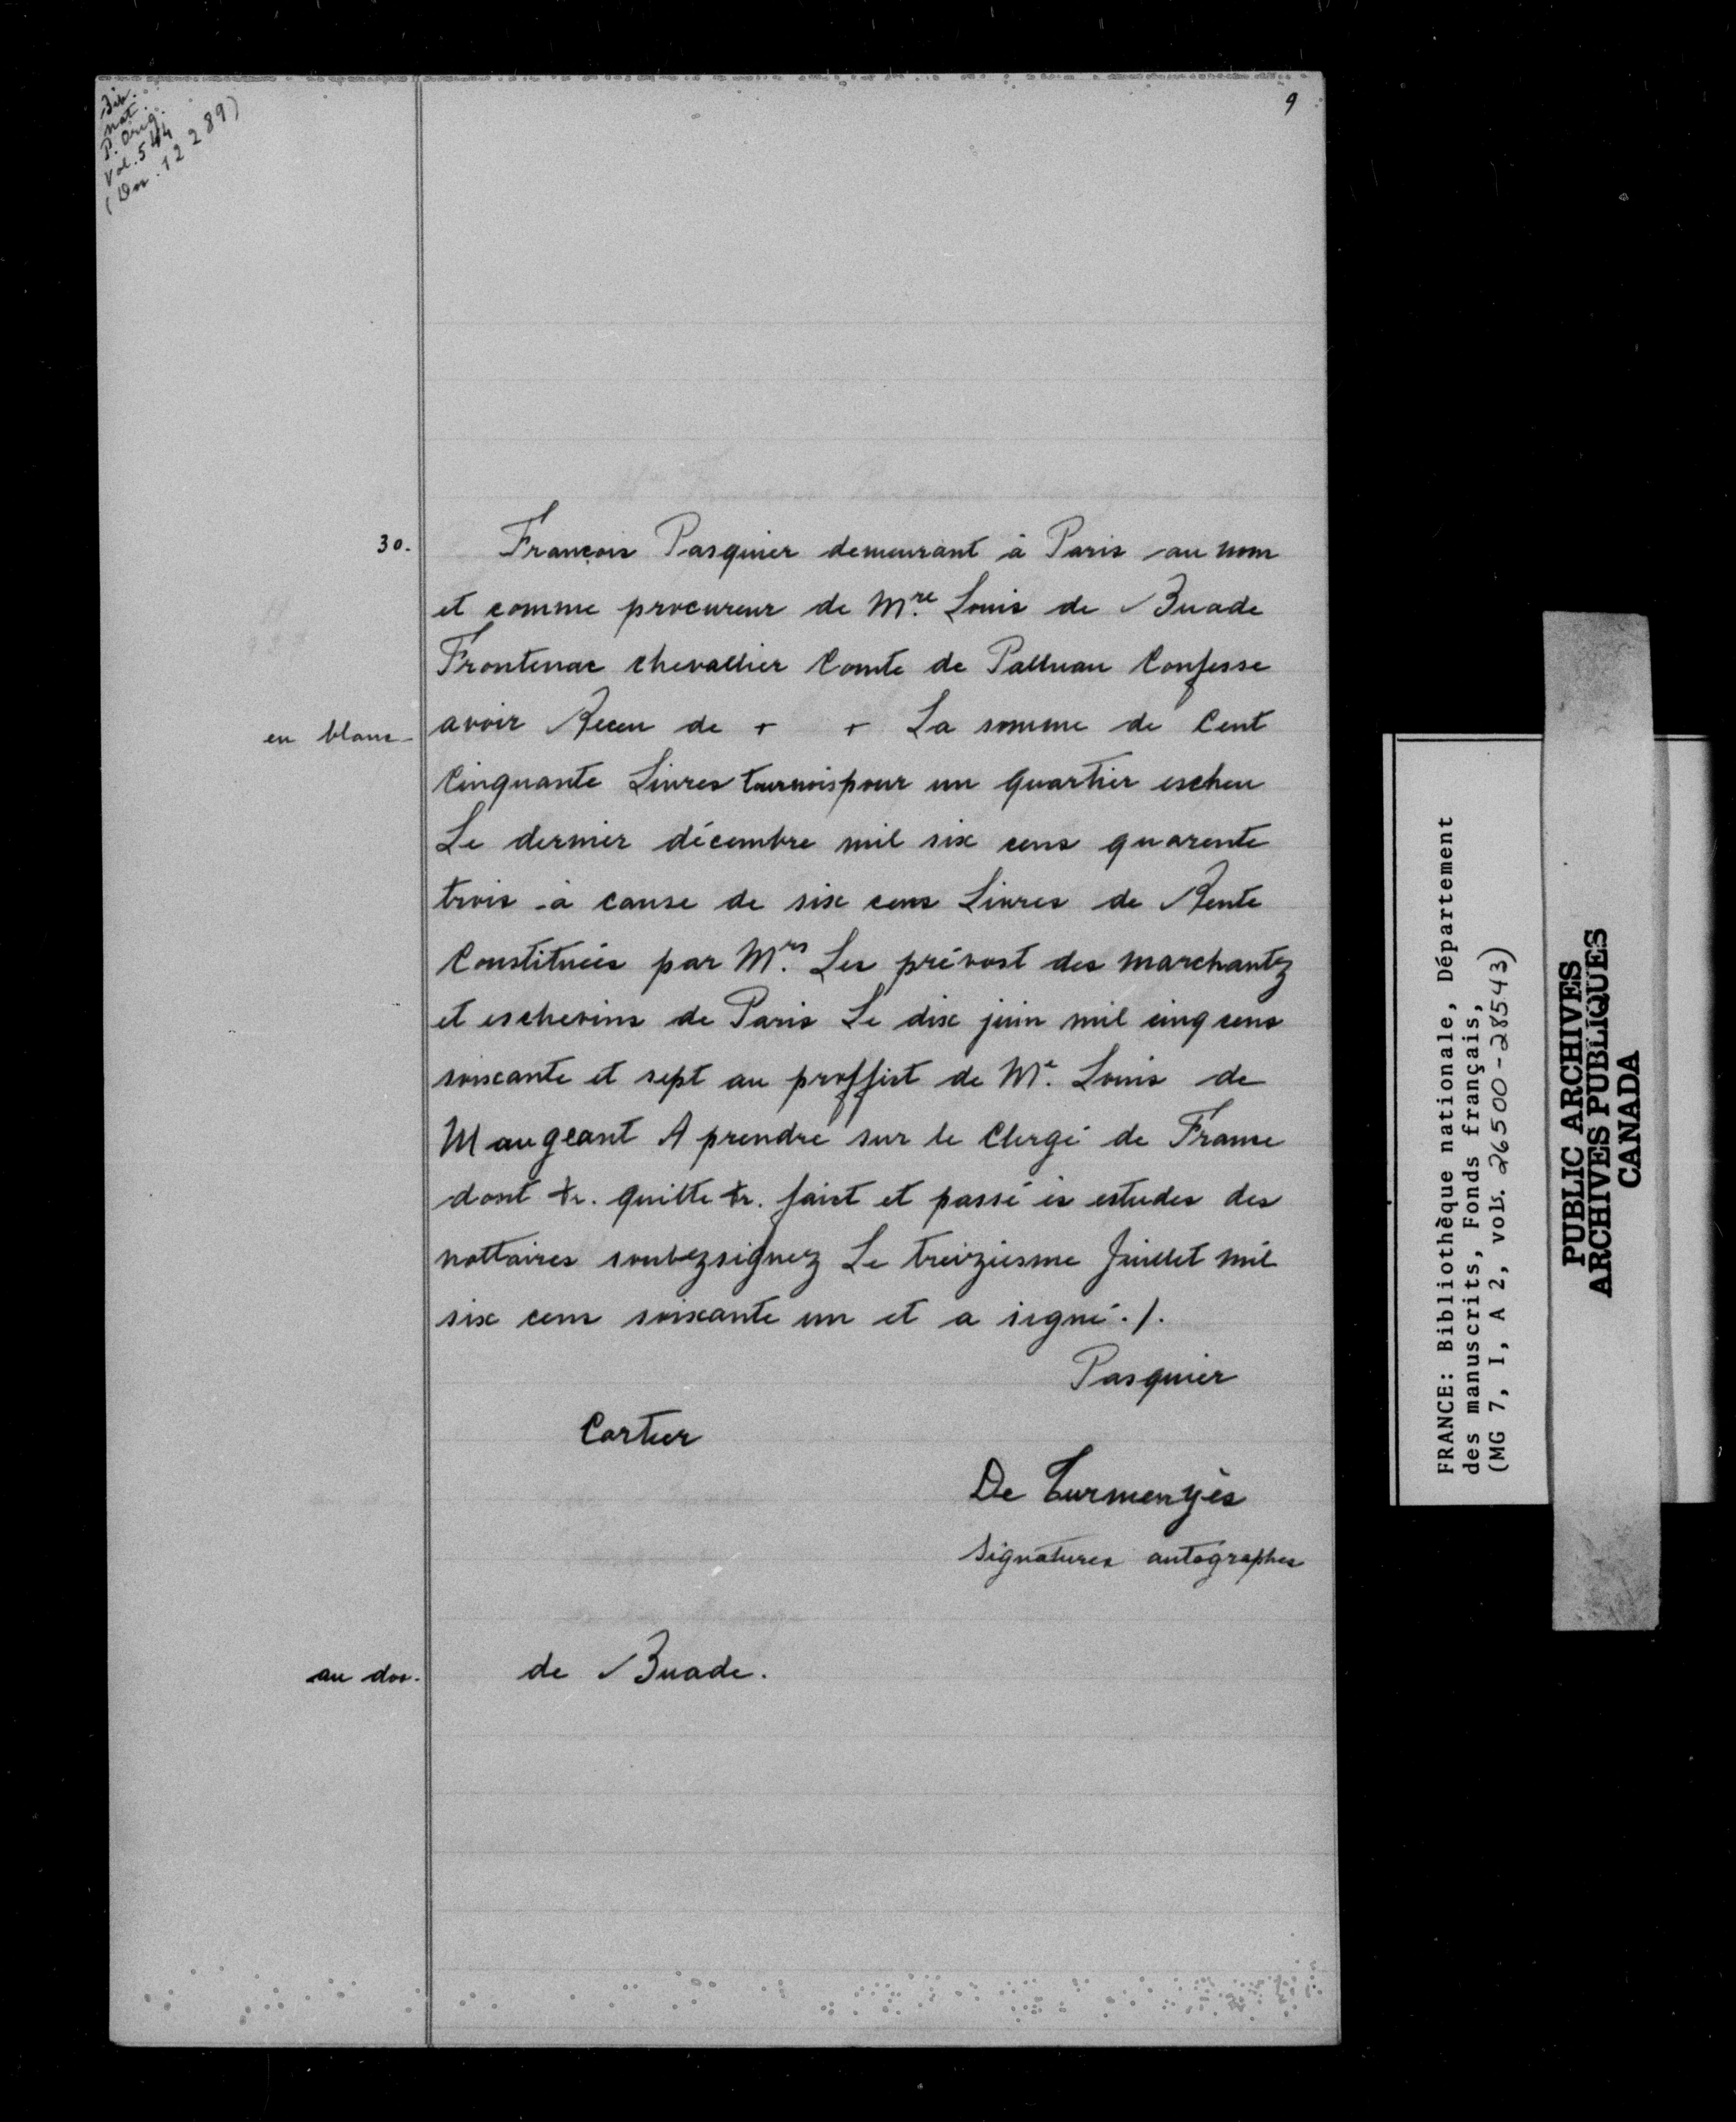 9
Bib.
nat.
P. Orig.
Vol. 544
(Dos. 12289)
30.
François Pasquier demeurant à Paris au nom
et comme procureur de Mre. Louis de Buade
Frontenac chevallier Comte de Palluau Confesse
en blanc
avoir Receu de + + La somme de Cent
Cinquante Livres tournois pour un quartier escheu
Le dernier décembre mil six cens quarente
trois à cause de six cens Livres de Rente
Constituées par Mrs. Les prévost des marchantz
et eschevins de Paris Le dix juin mil cinq cens
soixante et sept au proffist de Me. Louis de
Maugeant A prendre sur le Clergé de France
dont &r. quitte &r. faict et passé ès estudes des
nottaires soubzsignez Le treiziesme Juillet mil
six cens soixante un et a signé ./.
Pasquier
Cartier
De Turmenyès
signatures autographes
au dos.
de Buade.
FRANCE: Bibliothèque nationale, Département
des manuscrits, Fonds français,
(MG 7, I, A 2, vols. 26500-28543)
PUBLIC ARCHIVES
ARCHIVES PUBLIQUES
CANADA